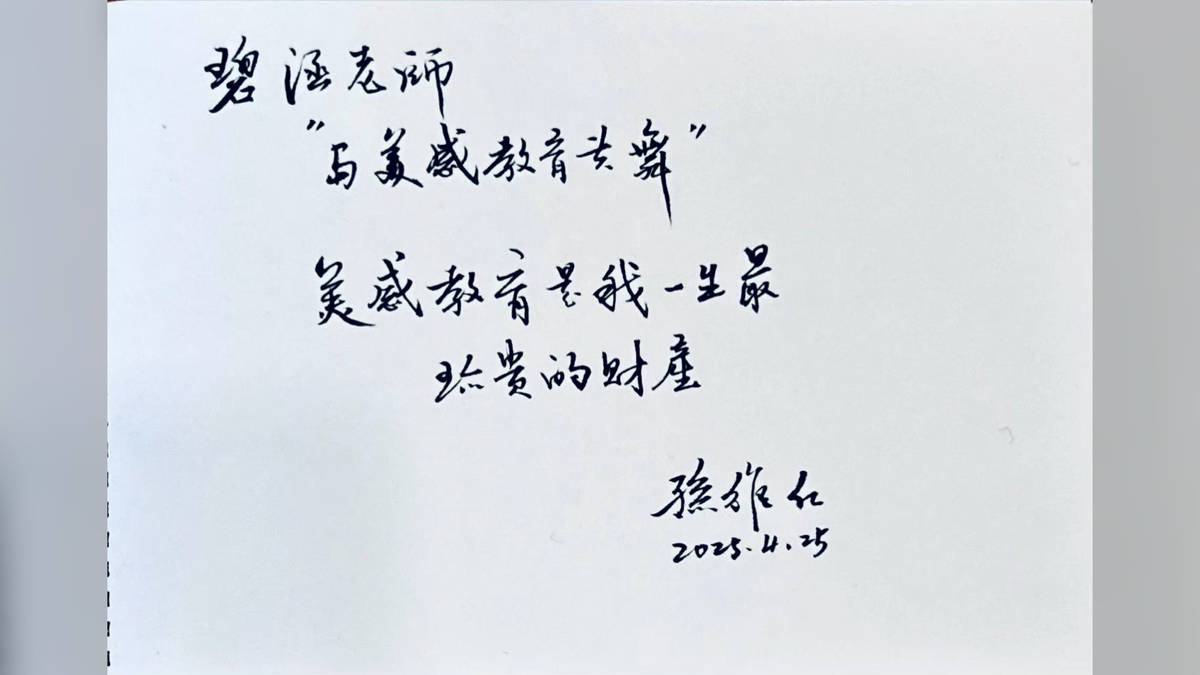 碧涵老師
"与美感教育共舞"
美感教育是我一生最
珍贵的财產
孫維仁
2025.4.25